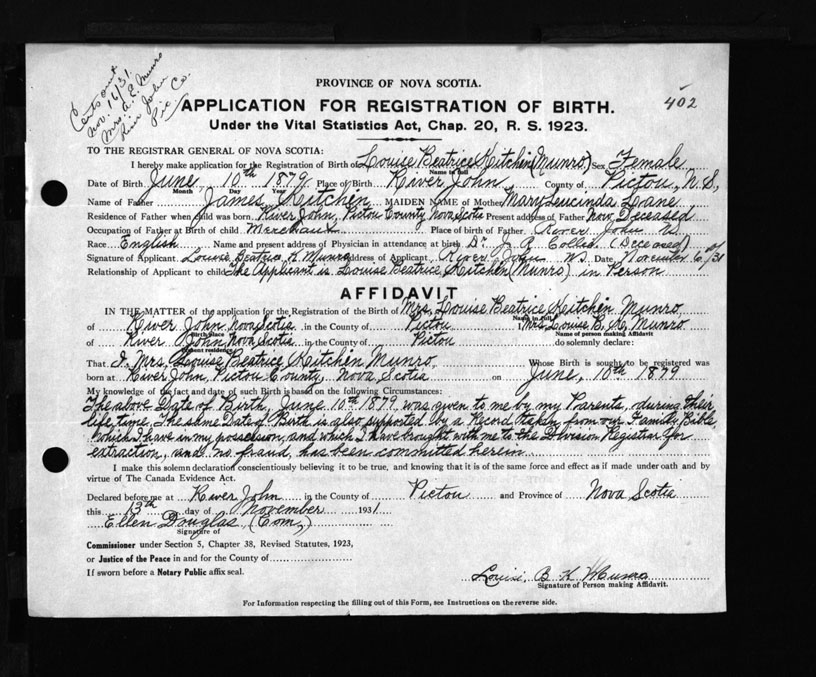 Cert sent
Nov. 16/31.
Mrs. A. E. Munro
River John
Pic. Co.
PROVINCE OF NOVA SCOTIA.
402
APPLICATION FOR REGISTRATION OF BIRTH.
Under the Vital Statistics Act, Chap. 20, R. S. 1923.
TO THE REGISTRAR GENERAL OF NOVA SCOTIA:
I hereby make application for the Registration of Birth of Louise Beatrice Kitchen (Munro) Sex Female
Name in full
Date of Birth June 10th 1879 Place of Birth River John County of Pictou, N.S.
Month Day Year
Name of Father James Kitchen MAIDEN NAME of Mother Mary Leucinda Lane
Residence of Father when child was born River John, Pictou County Nova Scotia Present address of Father Now Deceased
Occupation of Father at Birth of child Merchant Place of birth of Father River John N.S.
Race English Name and present address of Physician in attendance at birth Dr. J. R. Collie (Deceased)
Signature of Applicant Louise Beatrice K Munro Address of Applicant River John N.S. Date November 6th/31
Relationship of Applicant to child The Applicant is Louise Beatrice Kitchen (Munro) in Person
AFFIDAVIT
IN THE MATTER of the application for the Registration of the Birth of Mrs. Louise Beatrice Kitchen Munro
Name in full
of River John Nova Scotia in the County of Pictou I Mrs Louise B. K. Munro
Birth place Name of person making Affidavit
of River John Nova Scotia in the County of Pictou do solemnly declare:
Present residence
That I, Mrs, Louise Beatrice Kitchen Munro, Whose Birth is sought to be registered was
born at River John, Pictou County, Nova Scotia on June, 10th 1879
My knowledge of the fact and date of such Birth is based on the following Circumstances:
The above Date of Birth, June 10th 1879, was given to me by my Parents, during their
life time. The same Date of Birth is also supported by a Record taken from our Family Bible,
which I have in my possession, and which I have brought with me to the Division Registrar for
extraction, and no fraud, has been committed herein.
I make this solemn declaration conscientiously believing it to be true, and knowing that it is of the same force and effect as if made under oath and by
virtue of The Canada Evidence Act.
Declared before me at River John in the County of Pictou and Province of Nova Scotia
this 13th day of November 1931
Ellen Douglas, (Com,)
Signature of
Commissioner under Section 5, Chapter 38, Revised Statutes, 1923,
or Justice of the Peace in and for the County of
If sworn before a Notary Public affix seal.
Louise, B K Munro
Signature of Person making Affidavit.
For Information respecting the filling out of this Form, see Instructions on the reverse side.